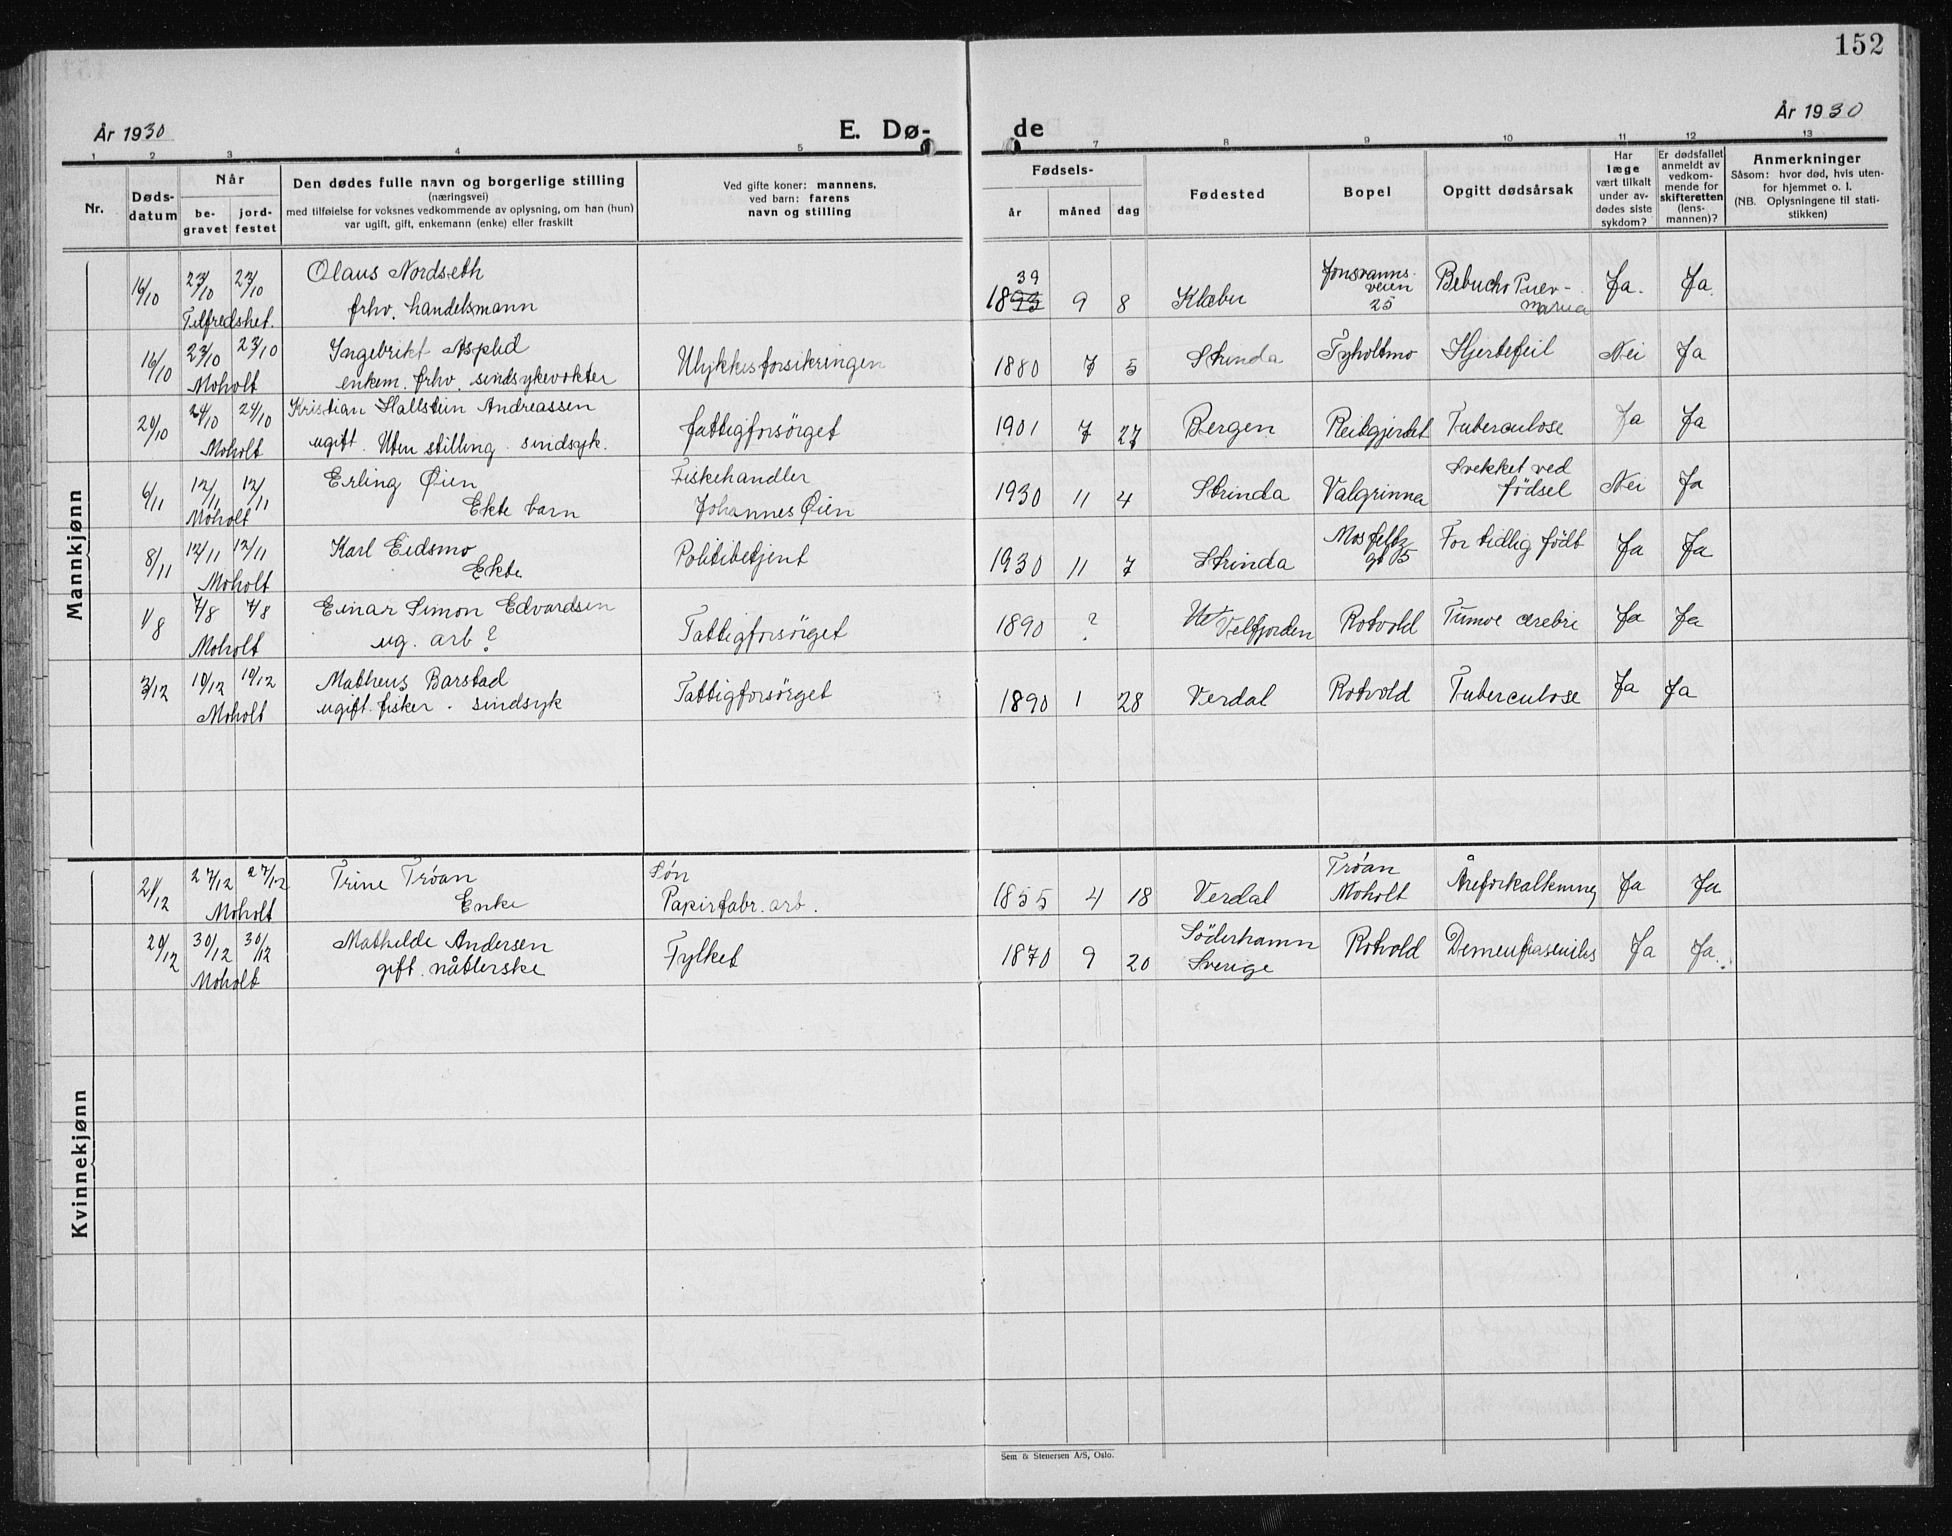 152
År 1930
E. Dø-
de
År 1930
1 2 3 4 5 7 8 9 10 11 12 13
Nr.
Døds-
datum
Når
be-
gravet
jord-
festet
Den dødes fulle navn og borgerlige stilling
(næringsvei)
med tilføielse for voksnes vedkommende av oplysning, om han (hun)
var ugift, gift, enkemann (enke) eller fraskilt
Ved gifte koner: mannens,
ved barn: farens
navn og stilling
Fødsels-
år måned dag
Fødested
Bopel
Opgitt dødsårsak
Har
læge
vært tilkalt
under av-
dødes siste
sykdom?
Er dødsfallet
anmeldt av
vedkom-
mende for
skifteretten
(lens-
mannen)?
Anmerkninger
Såsom: hvor død, hvis uten-
for hjemmet o. l.
(NB. Oplysningene til stati-
stikken)
Mannkjønn
16/10 23/10 23/10
Tilfredshet.
Olaus Nordseth
frhv. handelsmann
39
1893 9 8
Klæbu
Jonsvanns-
veien
25
Ja. Ja.
16/10 23/10 23/10
Moholt
Ingebrikt Asphd
enkem. frhv. sindsykevokter
Ulykkesforsikringen
1880 7 5
Strinda
Tyholtmo
Hjertefeil
Nei Ja
20/10 24/10 24/10
Moholt
Kristian Hallstein Andreassen
ugift. Uten stilling. sindsyk.
fattigforsørget
1901 7 27
Bergen
Reitgjerdet
Tuberculose
Ja Ja
6/11 12/11 12/11
Moholt
Erling Øien
Ekte barn
Fiskehandler
Johannes Øien
1930 11 4
Strinda
Valgrinna
Svekket ved
fødsel
Nei Ja
8/11 12/11 12/11
Moholt
Karl Eidsmo
Ekte
Politibetjent
1930 11 7
Strinda
gt 5
For tidlig født
Ja Ja
1/8 7/8 7/8
Moholt
Einar Simon Edvardsen
ug. arb?
Fattigforsørget
1890 ?
Velfjorden
Rotvold
Tumor cerebri
Ja Ja
3/12 10/12 10/12
Moholt
Matheus Barstad
ugift. fisker. sindsyk
Fattigforsørget
1890 1 28
Verdal
Rotvold
Tuberculose
Ja Ja
Kvinnekjønn
21/12 27/12 27/12
Moholt
Trine Trøan
Enke
Søn
Papirfabr. arb.
1855 4 18
Verdal
Trøan
Moholt
Åreforkalkning
Ja Ja
20/12 30/12 30/12
Moholt
Mathilde Andersen
gift. nåtlerske
Fylket
1870 9 20
Söderhamn
Sverige
Rotvold
Ja Ja.
Sem & Stenersen A/S, Oslo.